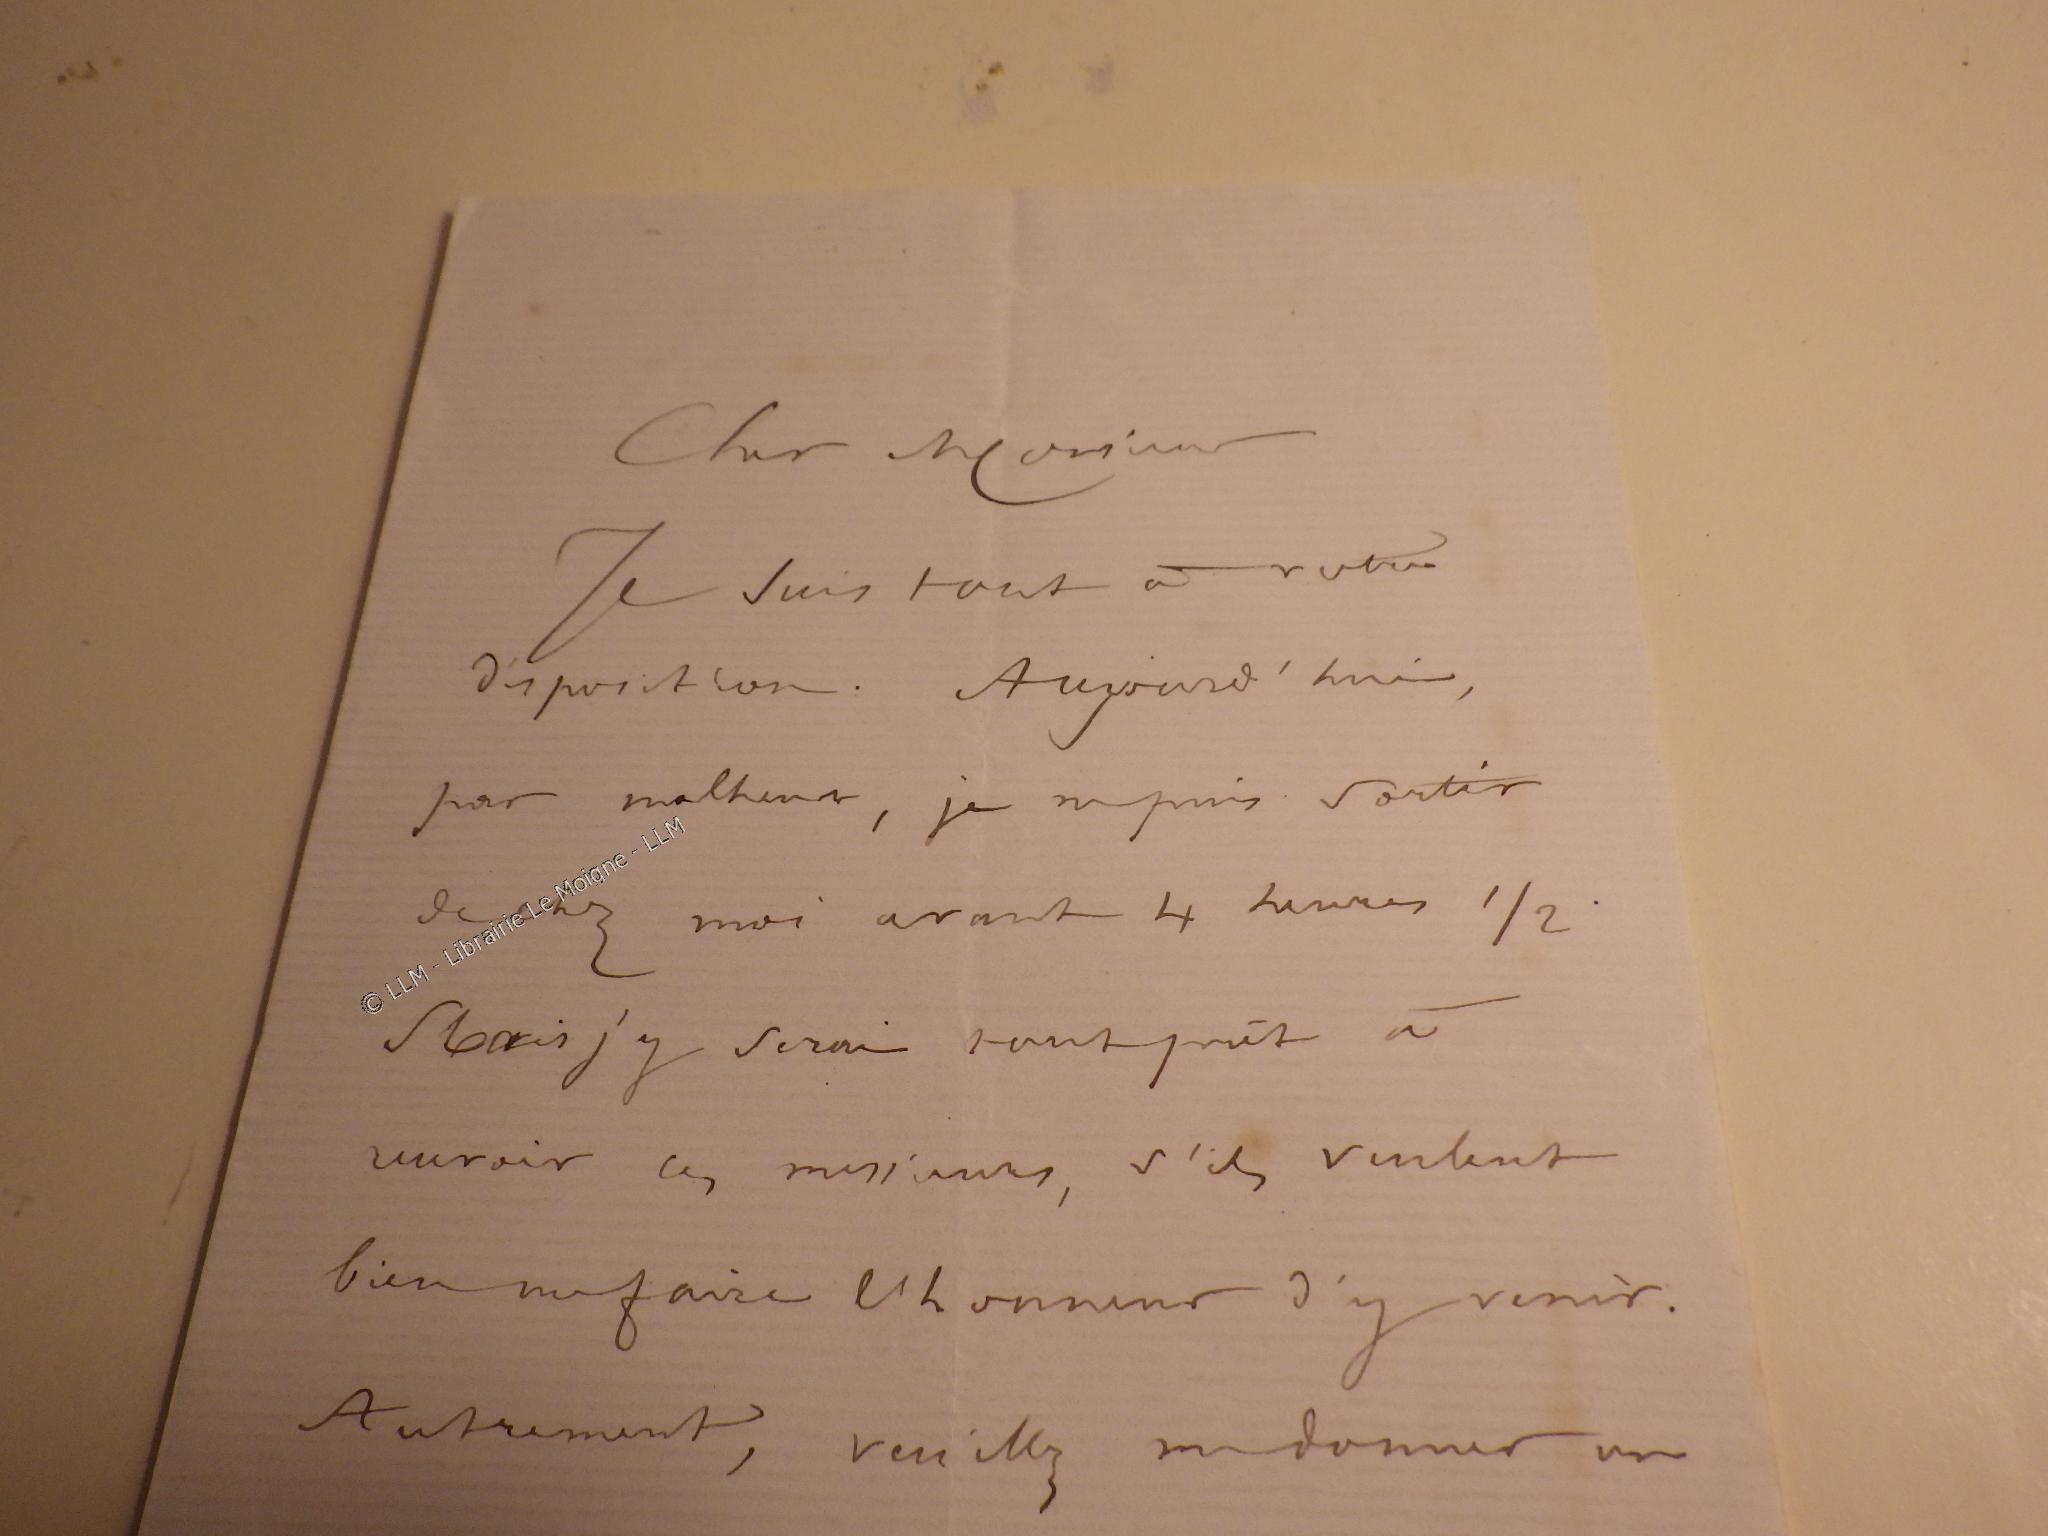 Cher Monsieur
Je suis tout à votre
disposition. Aujourd'hui,
par malheur, je ne puis sortir
de chez moi avant 4 heures 1/2.
Mais j'y serai tout prêt à
recevoir ces messieurs, s'ils veulent
bien me faire l'honneur d'y venir.
Autrement, veuillez me donner un
© LLM - Librairie Le Moigne - LLM